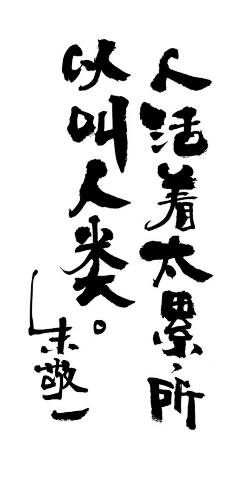 人活着太累、所
以叫人类。
朱敬一